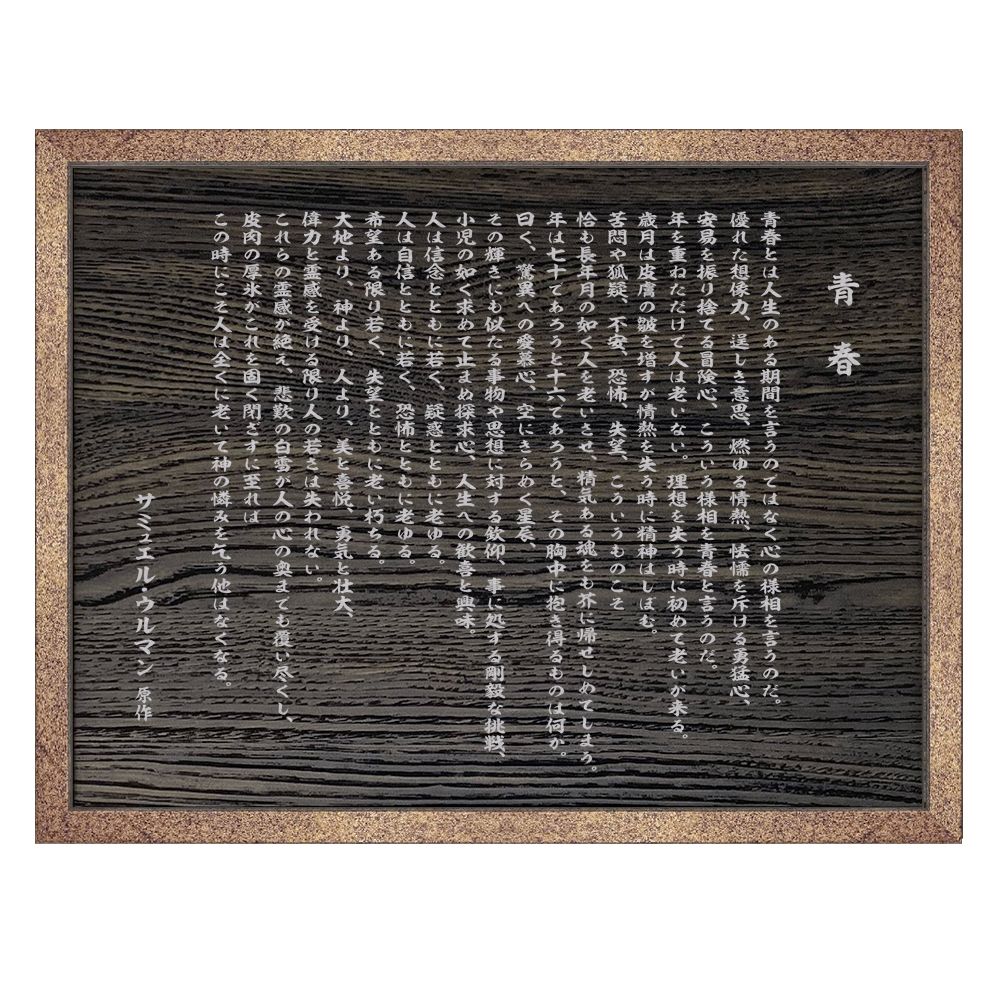 青春
青春とは人生のある期間を言うのではなく心の様相を言うのだ。
優れた想像力、逞しき意思、燃ゆる情熱、怯懦を斥ける勇猛心、
安易を振り捨てる冒険心、こういう様相を青春と言うのだ。
年を重ねただけで人は老いない。理想を失う時に初めて老いが来る。
歳月は皮膚の皺を増すが情熱を失う時に精神はしぼむ。
苦悶や狐疑、不安、恐怖、失望、こういうものこそ
恰も長年月の如く人を老いさせ、精気ある魂をも芥に帰せしめてしまう。
年は七十であろうと十六であろうと、その胸中に抱き得るものは何か。
曰く、驚異への愛慕心、空にきらめく星辰、
その輝きにも似たる事物や思想に対する欽仰、事に処する剛毅な挑戦、
小児の如く求めて止まぬ探求心、人生への歓喜と興味。
人は信念とともに若く、疑惑とともに老ゆる。
人は自信とともに若く、恐怖とともに老ゆる。
希望ある限り若く、失望とともに老い朽ちる。
大地より、神より、人より、美と喜悦、勇気と壮大、
偉力と霊感を受ける限り人の若さは失われない。
これらの霊感が絶え、悲歎の白雪が人の心の奥までも覆い尽くし、
皮肉の厚氷がこれを固く閉ざすに至れば
この時にこそ人は全くに老いて神の憐みを乞う他はなくなる。
サミュエル・ウルマン 原作